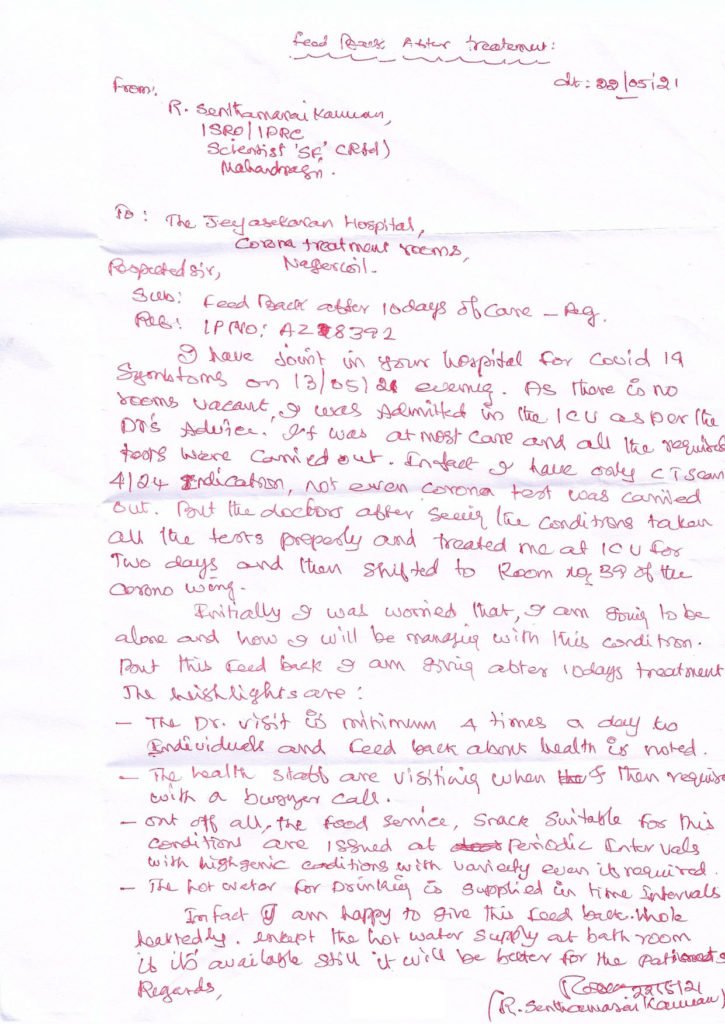 Feed Back After treatement:
dt: 22/05/21
From:
R. Senthamarai Kannan,
ISRO/IPRC
Scientist 'SF' (Rtd)
Mahendragiri.
To: The Jeyasekaran Hospital,
Corona treatment rooms,
Nagercoil.
Respected Sir,
Sub: Feed Back after 10days of Care – Reg.
Ref: IP NO: AZ 8392
I have joint in your hospital for Covid 19
Symptoms on 13/05/21 evening. As there is no
rooms vacant, I was Admitted in the ICU as per the
Dr's Advice. It was at most care and all the required
tests were carried out. Infact I have only CT scan
4/24 Indication, not even corona test was carried
out. But the doctors after seeing the conditions taken
all the tests properly and treated me at ICU for
Two days and then shifted to Room no 39 of the
corono wing.
Initially I was worried that, I am going to be
alone and how I will be managing with this condition.
But this feed back I am giving after 10days treatment
The heighlights are:
– The Dr. visit is minimum 4 times a day to
Individuels and feed back about health is noted.
– The health staff are visiting when I then require
with a buzzer call.
– ont off all, the food service, snack suitable for this
conditions are issued at Periodic Intervals
with highgenic conditions with variety even is required.
– The hot water for Drinking is supplied in time Intervals
Infact I am happy to give this feed back whole
heartedly. except the hot water supply at bath room
if it's available still it will be better for the patients
Regards,
22/5/21
(R. Senthamarai Kannan)